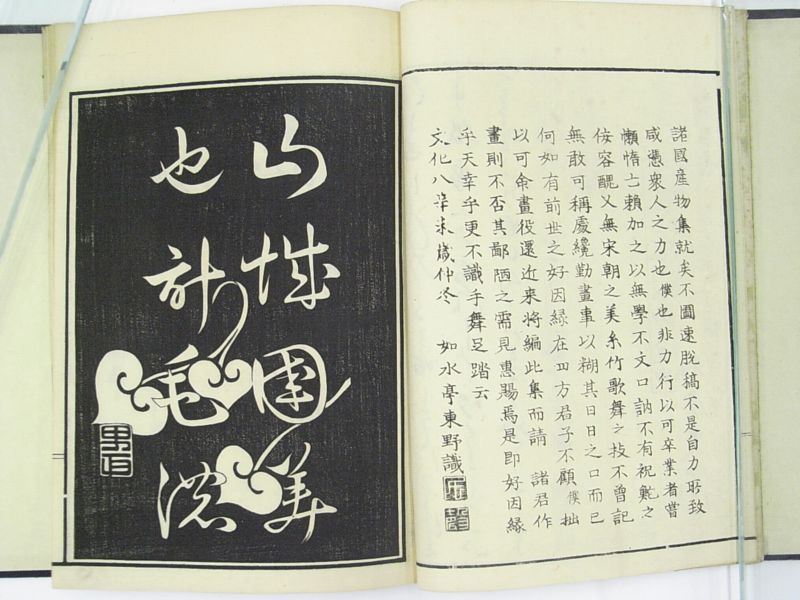 諸國産物集就矣不圖速脱稿不是自力所致
咸憑衆人之力也僕也非力行以可卒業者嘗
懶惰亡賴加之以無學不文口訥不有祝鮀之
侫容醜又無宋朝之美糸竹歌舞之技不曾記
無敢可稱處纔勤畫事以糊其日日之口而已
何如有前世之好因縁在四方君子不顧僕拙
以可命畫役還近来将編此集而請 諸君作
畫則不否其鄙陋之需見惠賜焉是即好因縁
乎天幸乎更不識手舞足踏云
文化八辛未歳仲冬 如水亭東野識
山城國美
也計毛濃